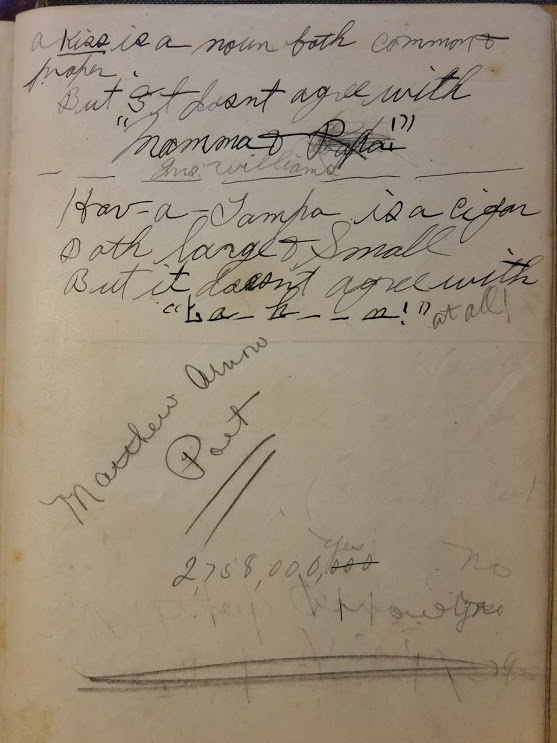 a Kiss is a noun both common &
proper.
But It doesnt agree with
"Momma & Papa!"
Williams
Hav-a-Tampa is a cigar
Both large & Small
But it doesn't agree with
at all!
Matthew Arnow
Poet
Yes
2,758,000,000
No